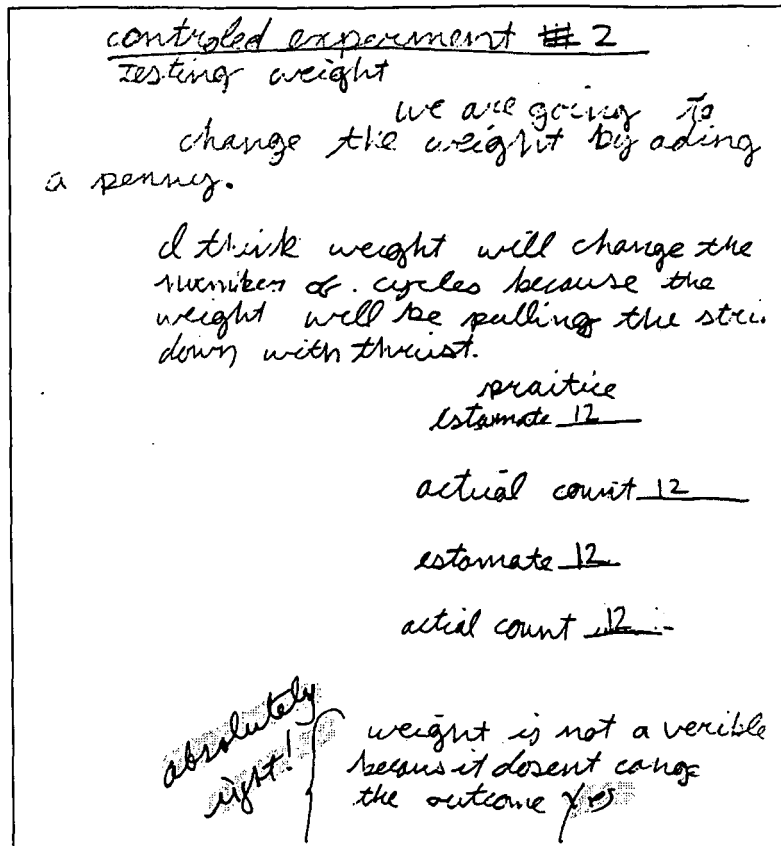 controled experment # 2
Testing weight
we are going to
change the weight by ading
a penny.
I think weight will change the
number of cycles because the
weight will be pulling the stri
down with thrust.
praitice
estamate 12
actual count 12
estamate 12
actial count 12
absolutely
right!
weight is not a verible
becaus it dosent cange
the outcome yes